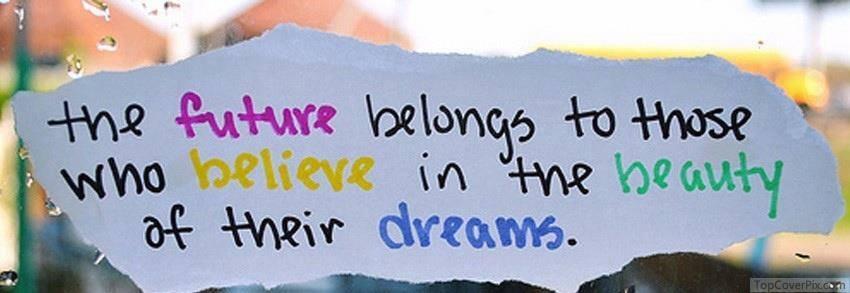 the future belongs to those
who believe in the beauty
of their dreams.
TopCoverPix.com